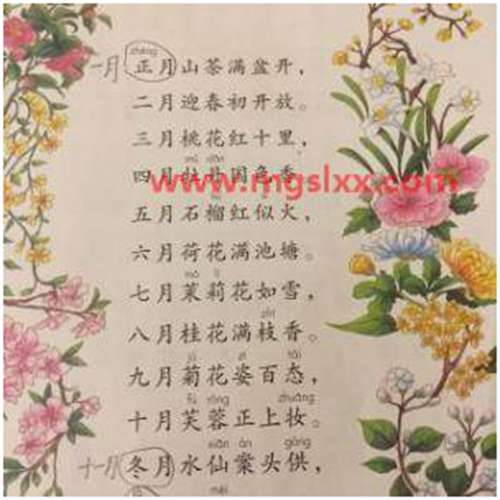 zhēng
一月 正月山茶满盆开，
二月迎春初开放。
三月桃花红十里，
mǔ dān
四月牡丹国色香。
www.mgslxx.com
五月石榴红似火，
六月荷花满池塘。
mò lì
七月茉莉花如雪，
zhī
八月桂花满枝香。
jú zī tài
九月菊花姿百态，
fú róng zhuāng
十月芙蓉正上妆。
xiān àn gòng
十一月 冬月水仙案头供，
là méi